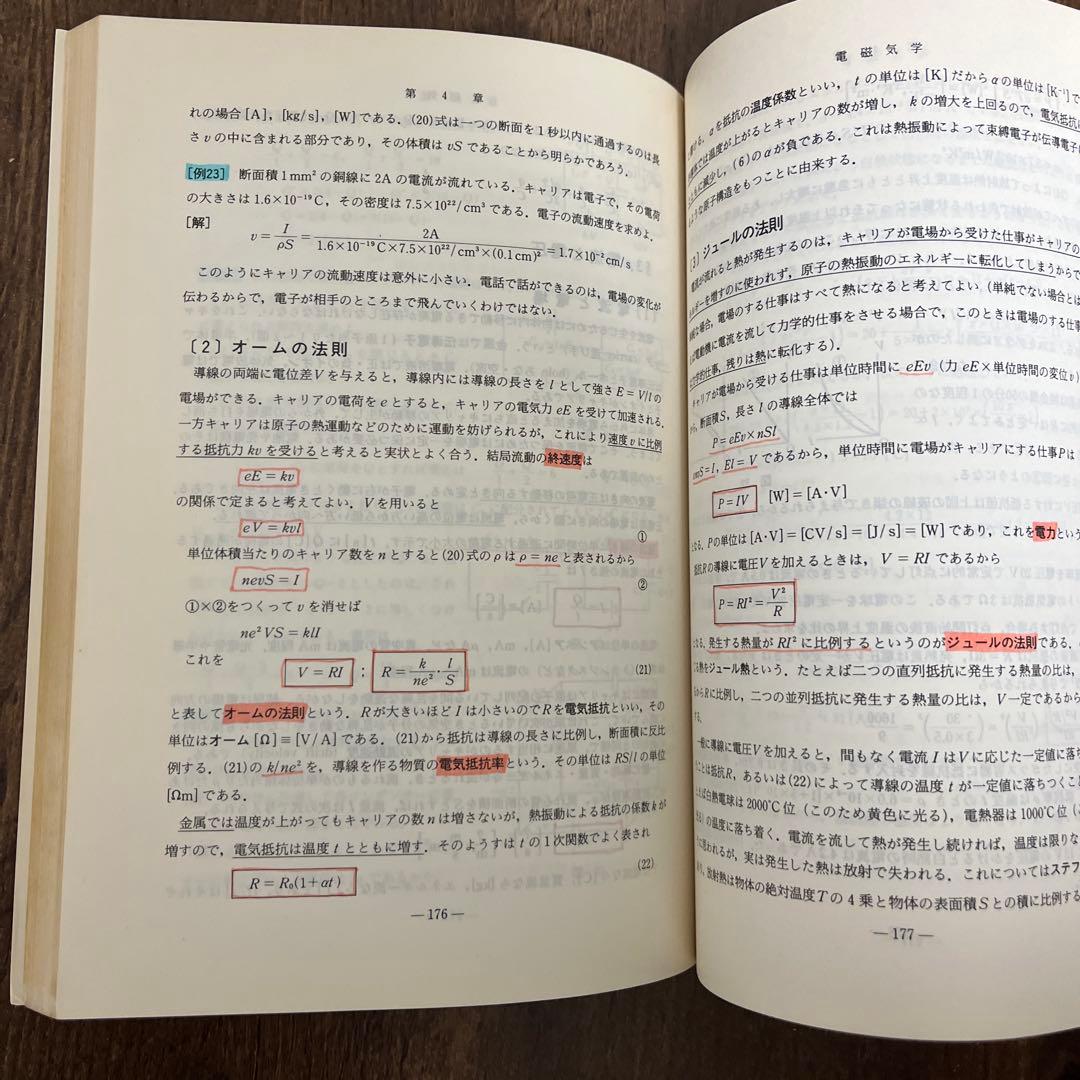 第 4 章
れの場合 [A]，[kg/s]，[W] である．(20)式は一つの断面を1秒以内に通過するのは長
さ v の中に含まれる部分であり，その体積は vS であることから明らかであろう．
[例23] 断面積 1 mm² の銅線に 2A の電流が流れている．キャリアは電子で，その電荷
の大きさは 1.6×10⁻¹⁹ C，その密度は 7.5×10²²/cm³ である．電子の流動速度を求めよ．
[解]
v = I/ρS = 2A/1.6×10⁻¹⁹ C×7.5×10²²/cm³×(0.1 cm)² = 1.7×10⁻² cm/s
このようにキャリアの流動速度は意外に小さい．電話で話ができるのは，電場の変化が
伝わるからで，電子が相手のところまで飛んでいくわけではない．
〔2〕オームの法則
導線の両端に電位差 V を与えると，導線内には導線の長さを l として強さ E = V/l の
電場ができる．キャリアの電荷を e とすると，キャリアの電気力 eE を受けて加速される．
一方キャリアは原子の熱運動などのために運動を妨げられるが，これにより速度 v に比例
する抵抗力 kv を受けると考えると実状とよく合う．結局流動の終速度は
eE = kv
の関係で定まると考えてよい．V を用いると
eV = kvl ①
単位体積当たりのキャリア数を n とすると(20)式の ρ は ρ = ne と表されるから
nevS = I ②
①×②をつくって v を消せば
ne²VS = klI
これを
V = RI ; R = k/ne² · l/S (21)
と表してオームの法則という．R が大きいほど I は小さいので R を電気抵抗といい，その
単位はオーム [Ω]≡[V/A] である．(21)から抵抗は導線の長さに比例し，断面積に反比
例する．(21)の k/ne² を，導線を作る物質の電気抵抗率という．その単位は RS/l の単位
[Ωm] である．
金属では温度が上がってもキャリアの数 n は増さないが，熱振動による抵抗の係数 k が
増すので，電気抵抗は温度 t とともに増す．そのようすは t の1次関数でよく表され
R = R₀(1+αt) (22)
—176—
電 磁 気 学
α を抵抗の温度係数といい，t の単位は [K] だから α の単位は [K⁻¹] で
では温度が上がるとキャリアの数が増し，k の増大を上回るので，電気抵抗は
に減少し，(6)の α が負である．これは熱振動によって束縛電子が伝導電子
な原子構造をもつことに由来する．
〔3〕ジュールの法則
が流れると熱が発生するのは，キャリアが電場から受けた仕事がキャリアの
ルギーを増すのに使われず，原子の熱振動のエネルギーに転化してしまうからで
場合，電場のする仕事はすべて熱になると考えてよい（単純でない場合とは
電動機に電流を流して力学的仕事をさせる場合で，このときは電場のする仕事
学的仕事，残りは熱に転化する）．
キャリアが電場から受ける仕事は単位時間に eEv（力 eE×単位時間の変位 v）
から，断面積 S，長さ l の導線全体では
P = eEv×nSl
S = I，El = V であるから，単位時間に電場がキャリアにする仕事 P は
P = IV [W]=[A·V]
となる．P の単位は [A·V]=[CV/s]=[J/s]=[W] であり，これを電力という
抵抗 R の導線に電圧 V を加えるときは，V = RI であるから
P = RI² = V²/R
となる．発生する熱量が RI² に比例するというのがジュールの法則である．
る熱をジュール熱という．たとえば二つの直列抵抗に発生する熱量の比は，
から R に比例し，二つの並列抵抗に発生する熱量の比は，V 一定であるから
する．
一般に導線に電圧 V を加えると，間もなく電流 I は V に応じた一定値に落ち
ことは抵抗 R，あるいは(22)によって導線の温度 t が一定値に落ちつくこと
えば白熱電球は 2000℃ 位（このため黄色に光る），電熱器は 1000℃ 位
の温度に落ち着く．電流を流して熱が発生し続ければ，温度は限りな
に思われるが，実は発生した熱は放射で失われる．これについてはステフ
り，放射熱は物体の絶対温度 T の 4 乗と物体の表面積 S との積に比例する
—177—